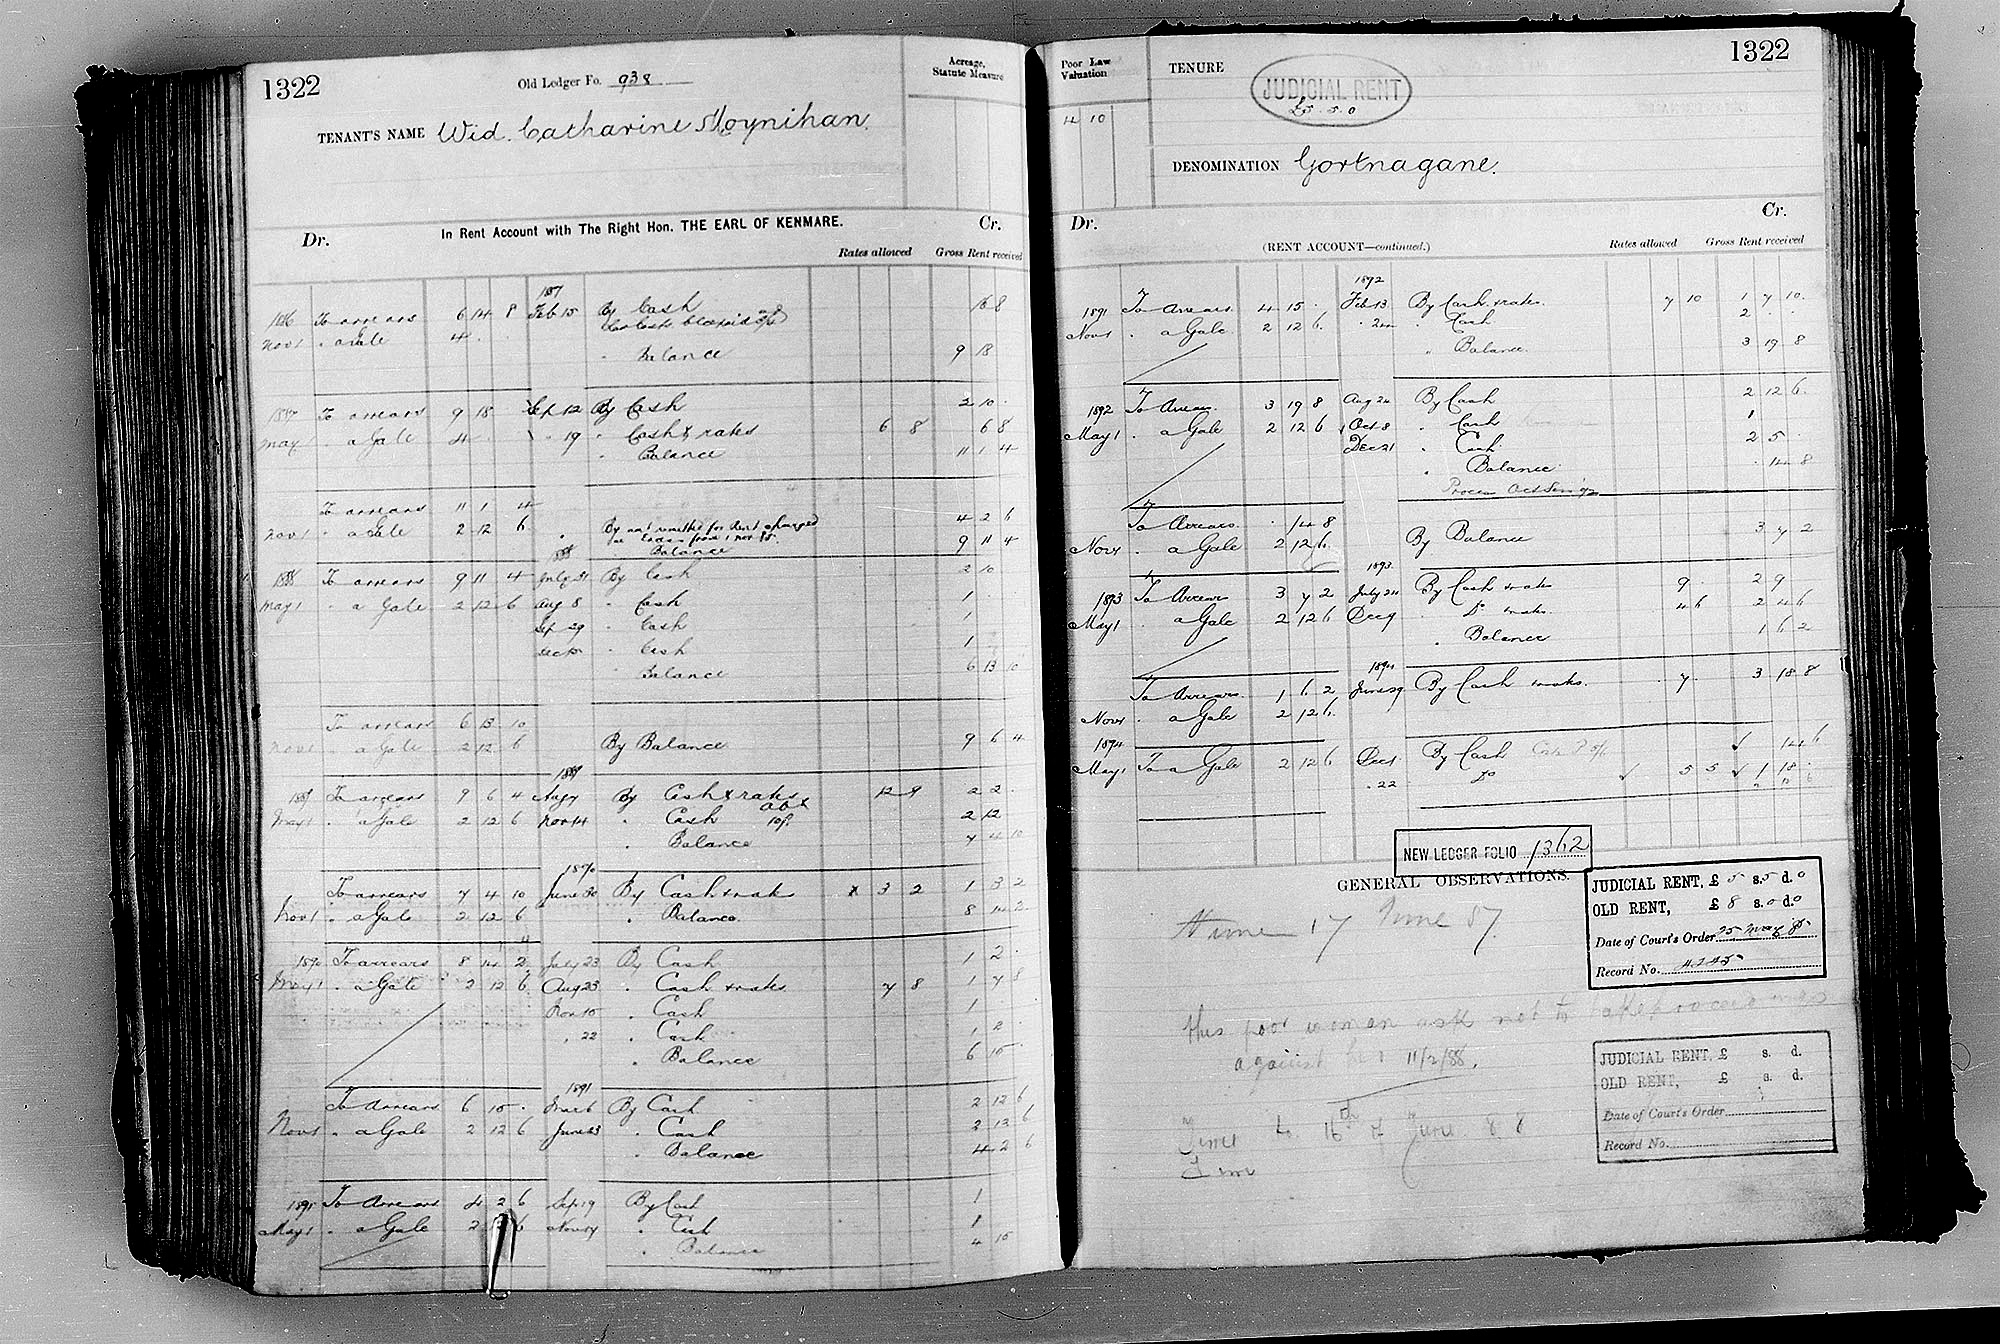 1322
Old Ledger Fo. 938
Acreage,
Statute Measure
TENANT'S NAME Wid. Catharine Moynihan.
In Rent Account with The Right Hon. THE EARL OF KENMARE.
Dr. Cr.
Rates allowed Gross Rent received
1886 To arrears 6 14 8 Feb 15 By Cash 16 8
Nov 1 " a Gale 4 . .
" Balance 9 18
1887 To arrears 9 18 Sep 12 By Cash 2 10 .
May 1 " a Gale 4 . . " 19 " Cash & rates 6 8 6 8
" Balance 11 1 4
To arrears 11 1 4
Nov 1 " a Gale 2 12 6 By amt remitted for Rent charged 4 2 6
Balance 9 11 4
1888 To arrears 9 11 4 July 31 By Cash 2 10
May 1 " a Gale 2 12 6 Aug 8 " Cash 1 .
Sep 29 " Cash 1
" Cash 1
" Balance 6 13 10
To arrears 6 13 10
Nov 1 " a Gale 2 12 6 By Balance 9 6 4
1889
1889 To arrears 9 6 4 Aug 7 By Cash & rates 12 9 2 2 .
May 1 " a Gale 2 12 6 Nov 14 " Cash 2 12
" Balance 7 4 10
1890
To arrears 7 4 10 June 30 By Cash & rates x 3 2 1 3 2
Nov 1 " a Gale 2 12 6 " Balance. 8 14 2
1890 To arrears 8 14 2 July 23 By Cash 1 2 .
May 1 " a Gale 2 12 6 Aug 23 " Cash & rates 7 8 1 7 8
Nov 10 " Cash 1
" 22 " Cash 1 2 .
" Balance 6 15 .
1891
To Arrears 6 15 . Mar 6 By Cash 2 12 6
Nov 1 " a Gale 2 12 6 June 23 " Cash 2 12 6
" Balance 4 2 6
1891 To Arrears 4 2 6 Sep 19 By Cash 1
May 1 " a Gale 2 6 " Cash 1
" Balance 4 15
1322
Poor Law
Valuation
4 10
TENURE
JUDICIAL RENT
£5.5.0
DENOMINATION Gortnagane.
Dr. Cr.
(RENT ACCOUNT—continued.)
Rates allowed Gross Rent received
1892
1891 To Arrears 4 15 . Feb 13 By Cash & rates. 7 10 1 7 10.
Nov 1 " a Gale 2 12 6. " Cash 2 . .
" Balance. 3 19 8
1892 To Arrears. 3 19 8 Aug 24 By Cash 2 12 6.
May 1 " a Gale 2 12 6 Oct 8 " Cash 1
Dec 21 " Cash 2 5 .
" Balance . 14 8
To Arrears. . 14 8
Nov 1 " a Gale 2 12 6. By Balance 3 7 2
1893
1893 To Arrears 3 7 2 July 24 By Cash & rates 9 . 2 9
May 1 " a Gale 2 12 6 Dec 9 " Do & rates. 4 6 2 4 6
" Balance 1 6 2
1894
To Arrears. 1 6 2 June 29 By Cash & rates. 7 . 3 18 8
Nov 1 " a Gale 2 12 6.
1894
May 1 To a Gale 2 12 6 Dec 1 By Cash 14 6
. 22 Do 5 5 1 18 .
NEW LEDGER FOLIO 1362
GENERAL OBSERVATIONS.
JUDICIAL RENT, £ 5 s. 5 d. 0
OLD RENT, £ 8 s. 0 d. 0
Date of Court's Order 25 May 85
Record No. 4245
Time 17 June 87.
this poor woman ask not to take proceedings
against her 11/2/88.
JUDICIAL RENT, £ s. d.
OLD RENT, £ s. d.
Date of Court's Order
Record No.
Time to 16th of June 88
Time